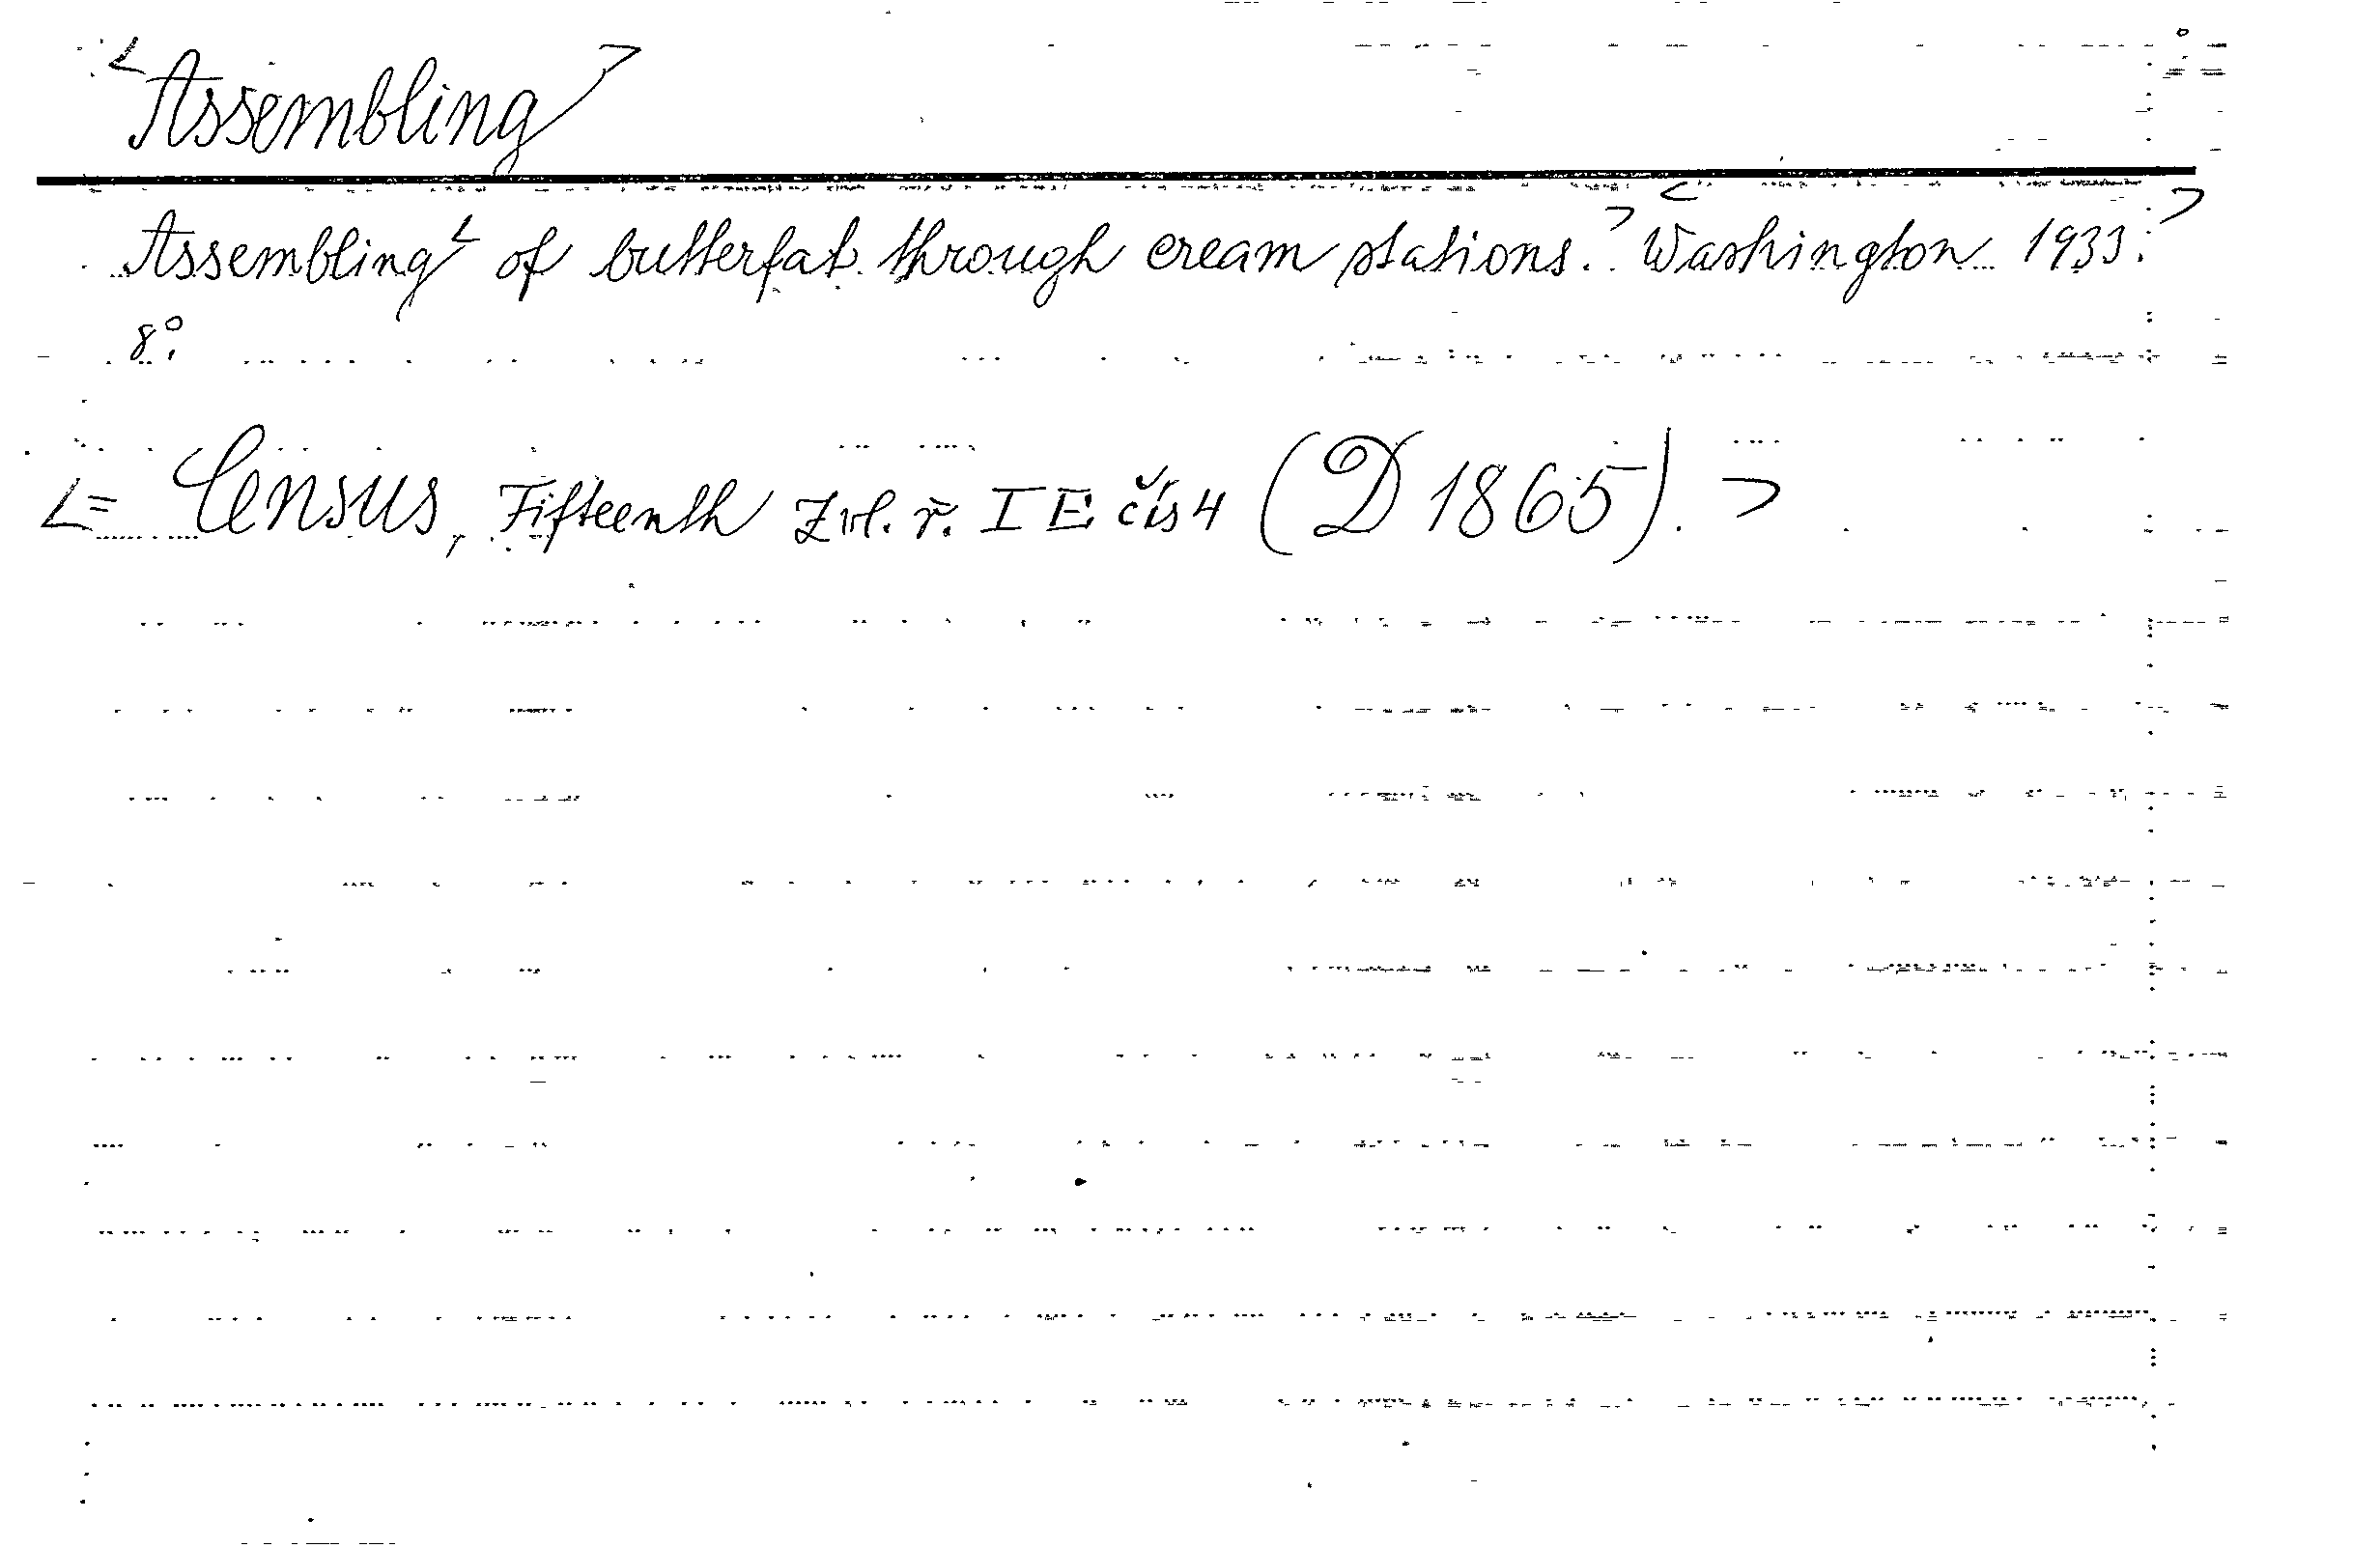 <Assembling>
Assembling< of butterfat through cream stations.> <Washington 1933.>
8°.
<= Census, Fifteenth Zvl. ř. I E čís 4 (D 1865). >